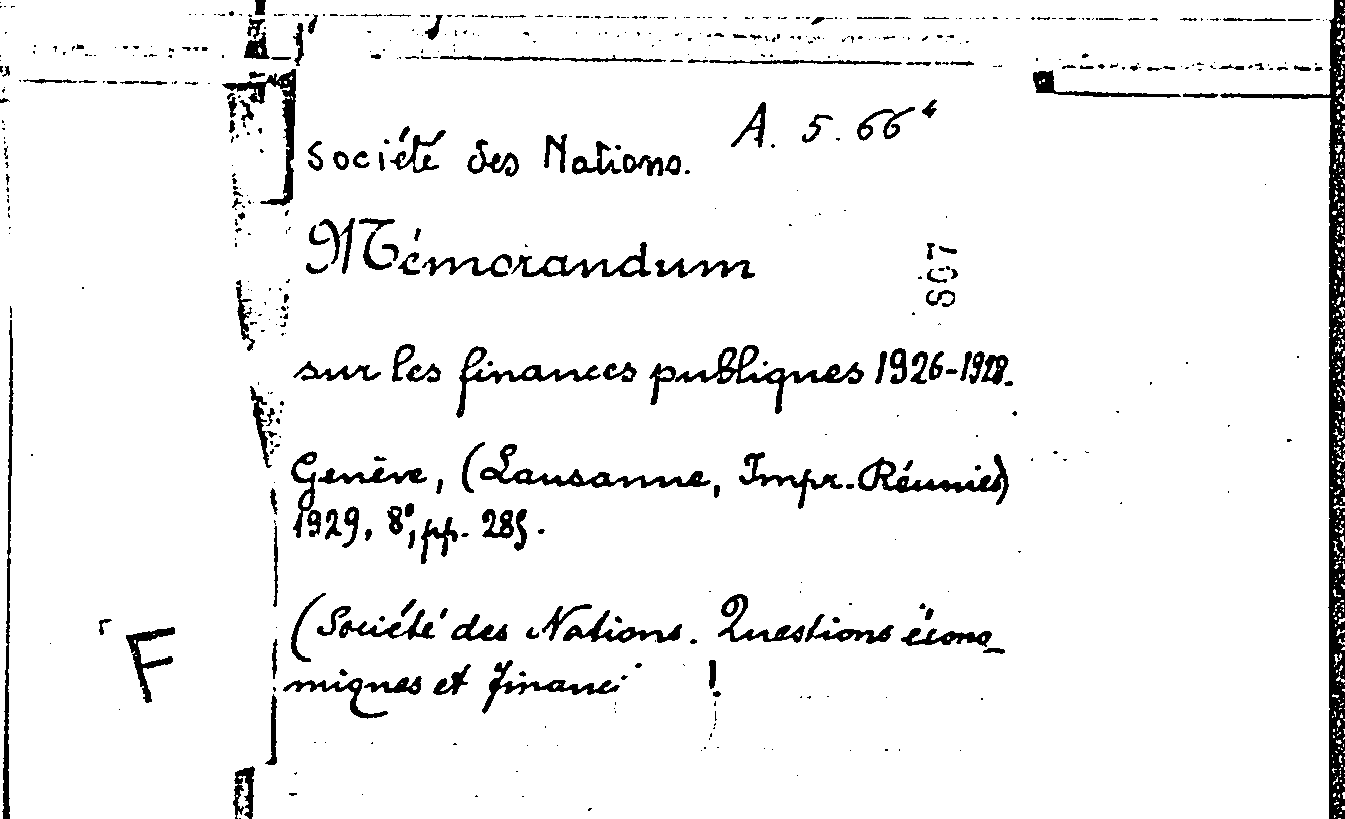 A. 5. 66⁴
Société des Nations.
Mémorandum
507
sur les finances publiques 1926-1928.
Genève, (Lausanne, Impr. Réunies)
1929, 8°, pp. 285.
(Société des Nations. Questions écono_
miques et financi
F